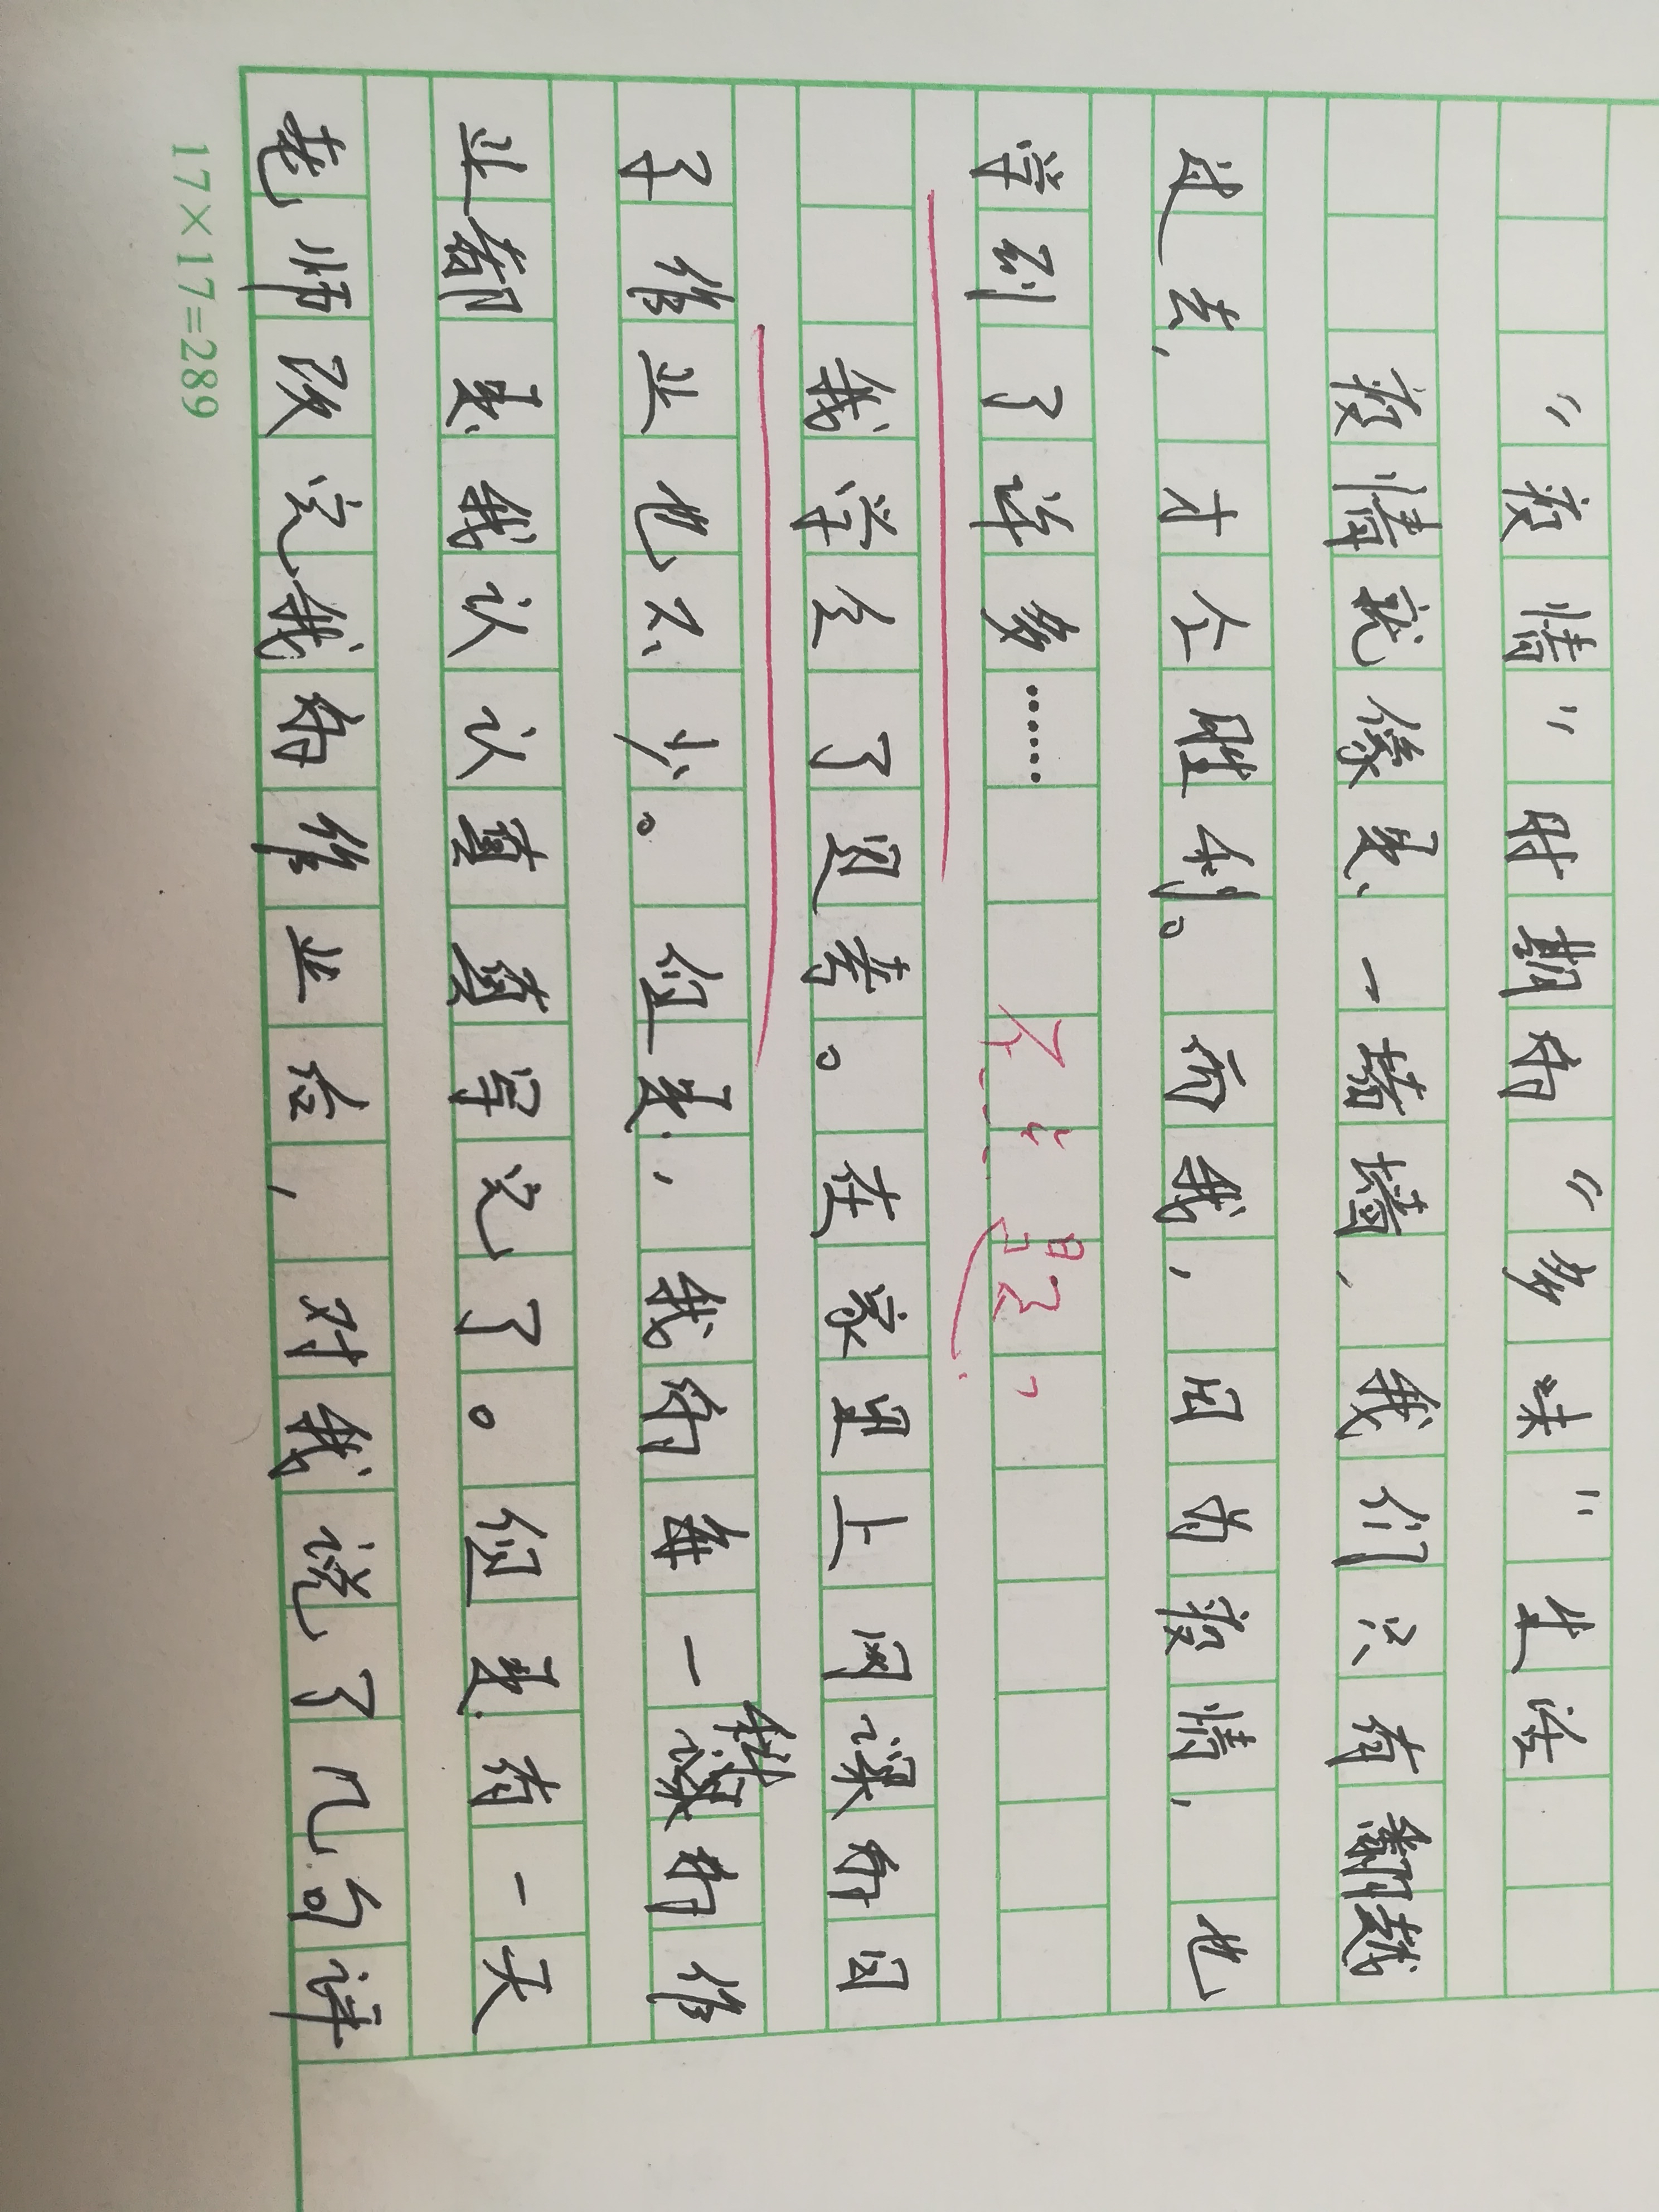 “疫情”时期的“多味”生活
疫情就像是一堵墙,我们只有翻越
过去,才会胜利。而我,因为疫情,也
学到了许多……
我学会了思考。在家里上网课的日
子作业也不少。但是,我的每一的作
业都是我认认真真写完了。但是有一天
老师改完我的作业后,对我说了几句评
17×17=289